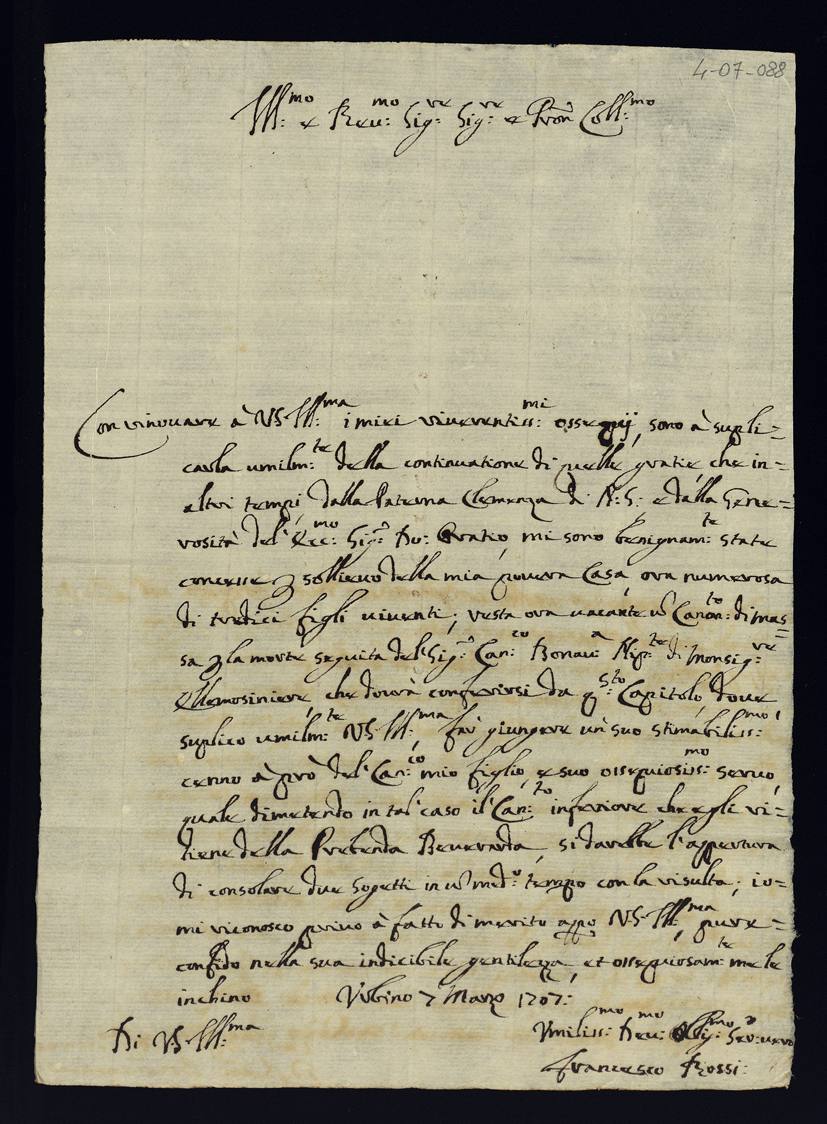 4-07-088
Ill:mo e Rev:mo Sig:re Sig:re e Pron Coll:mo
Con rinovare à VS Ill:ma i miei riverentiss:mi ossequij, sono à supli=
carla umilm:te della continuatione di quelle gratie, che in=
altri tempi, dalla Paterna Clemenza di N:S:, e dalla Gene=
rosità del' Ecc:mo Sig:r Du: Oratio, mi sono benignam:te state
concesse p sollievo della mia povera Casa, ora numerosa
di tredici figli viventi; resta ora vacante un Canon:to di mas=
sa p la morte seguita del' Sig:r Can:co Bonav:a Nip:te di Monsig:re
Ellemosiniere, che dovrà conferirsi da q:sto Capitolo, dove
suplico umilm:te VS Ill:ma, far giungere un suo stimabiliss:mo
cenno à prò del' Can:co mio figlio, e suo ossequiosiss:mo servo,
quale dimetendo in tal' caso il' Can:to inferiore che egli ri=
tiene della Prebenda Beverarda, si darebbe l'appertura
di consolare due sogetti in un med:o tempo con la risulta; io=
mi riconosco privo à fatto di merito appo VS Ill:ma, pure=
confido nella sua indicibile gentilezza, et ossequiosam:te me le
inchino Urbino 7 Marzo 1707:
Di VS Ill:ma
Umiliss:mo Dev:mo Oblig:mo Ser:
Francesco Rossi: